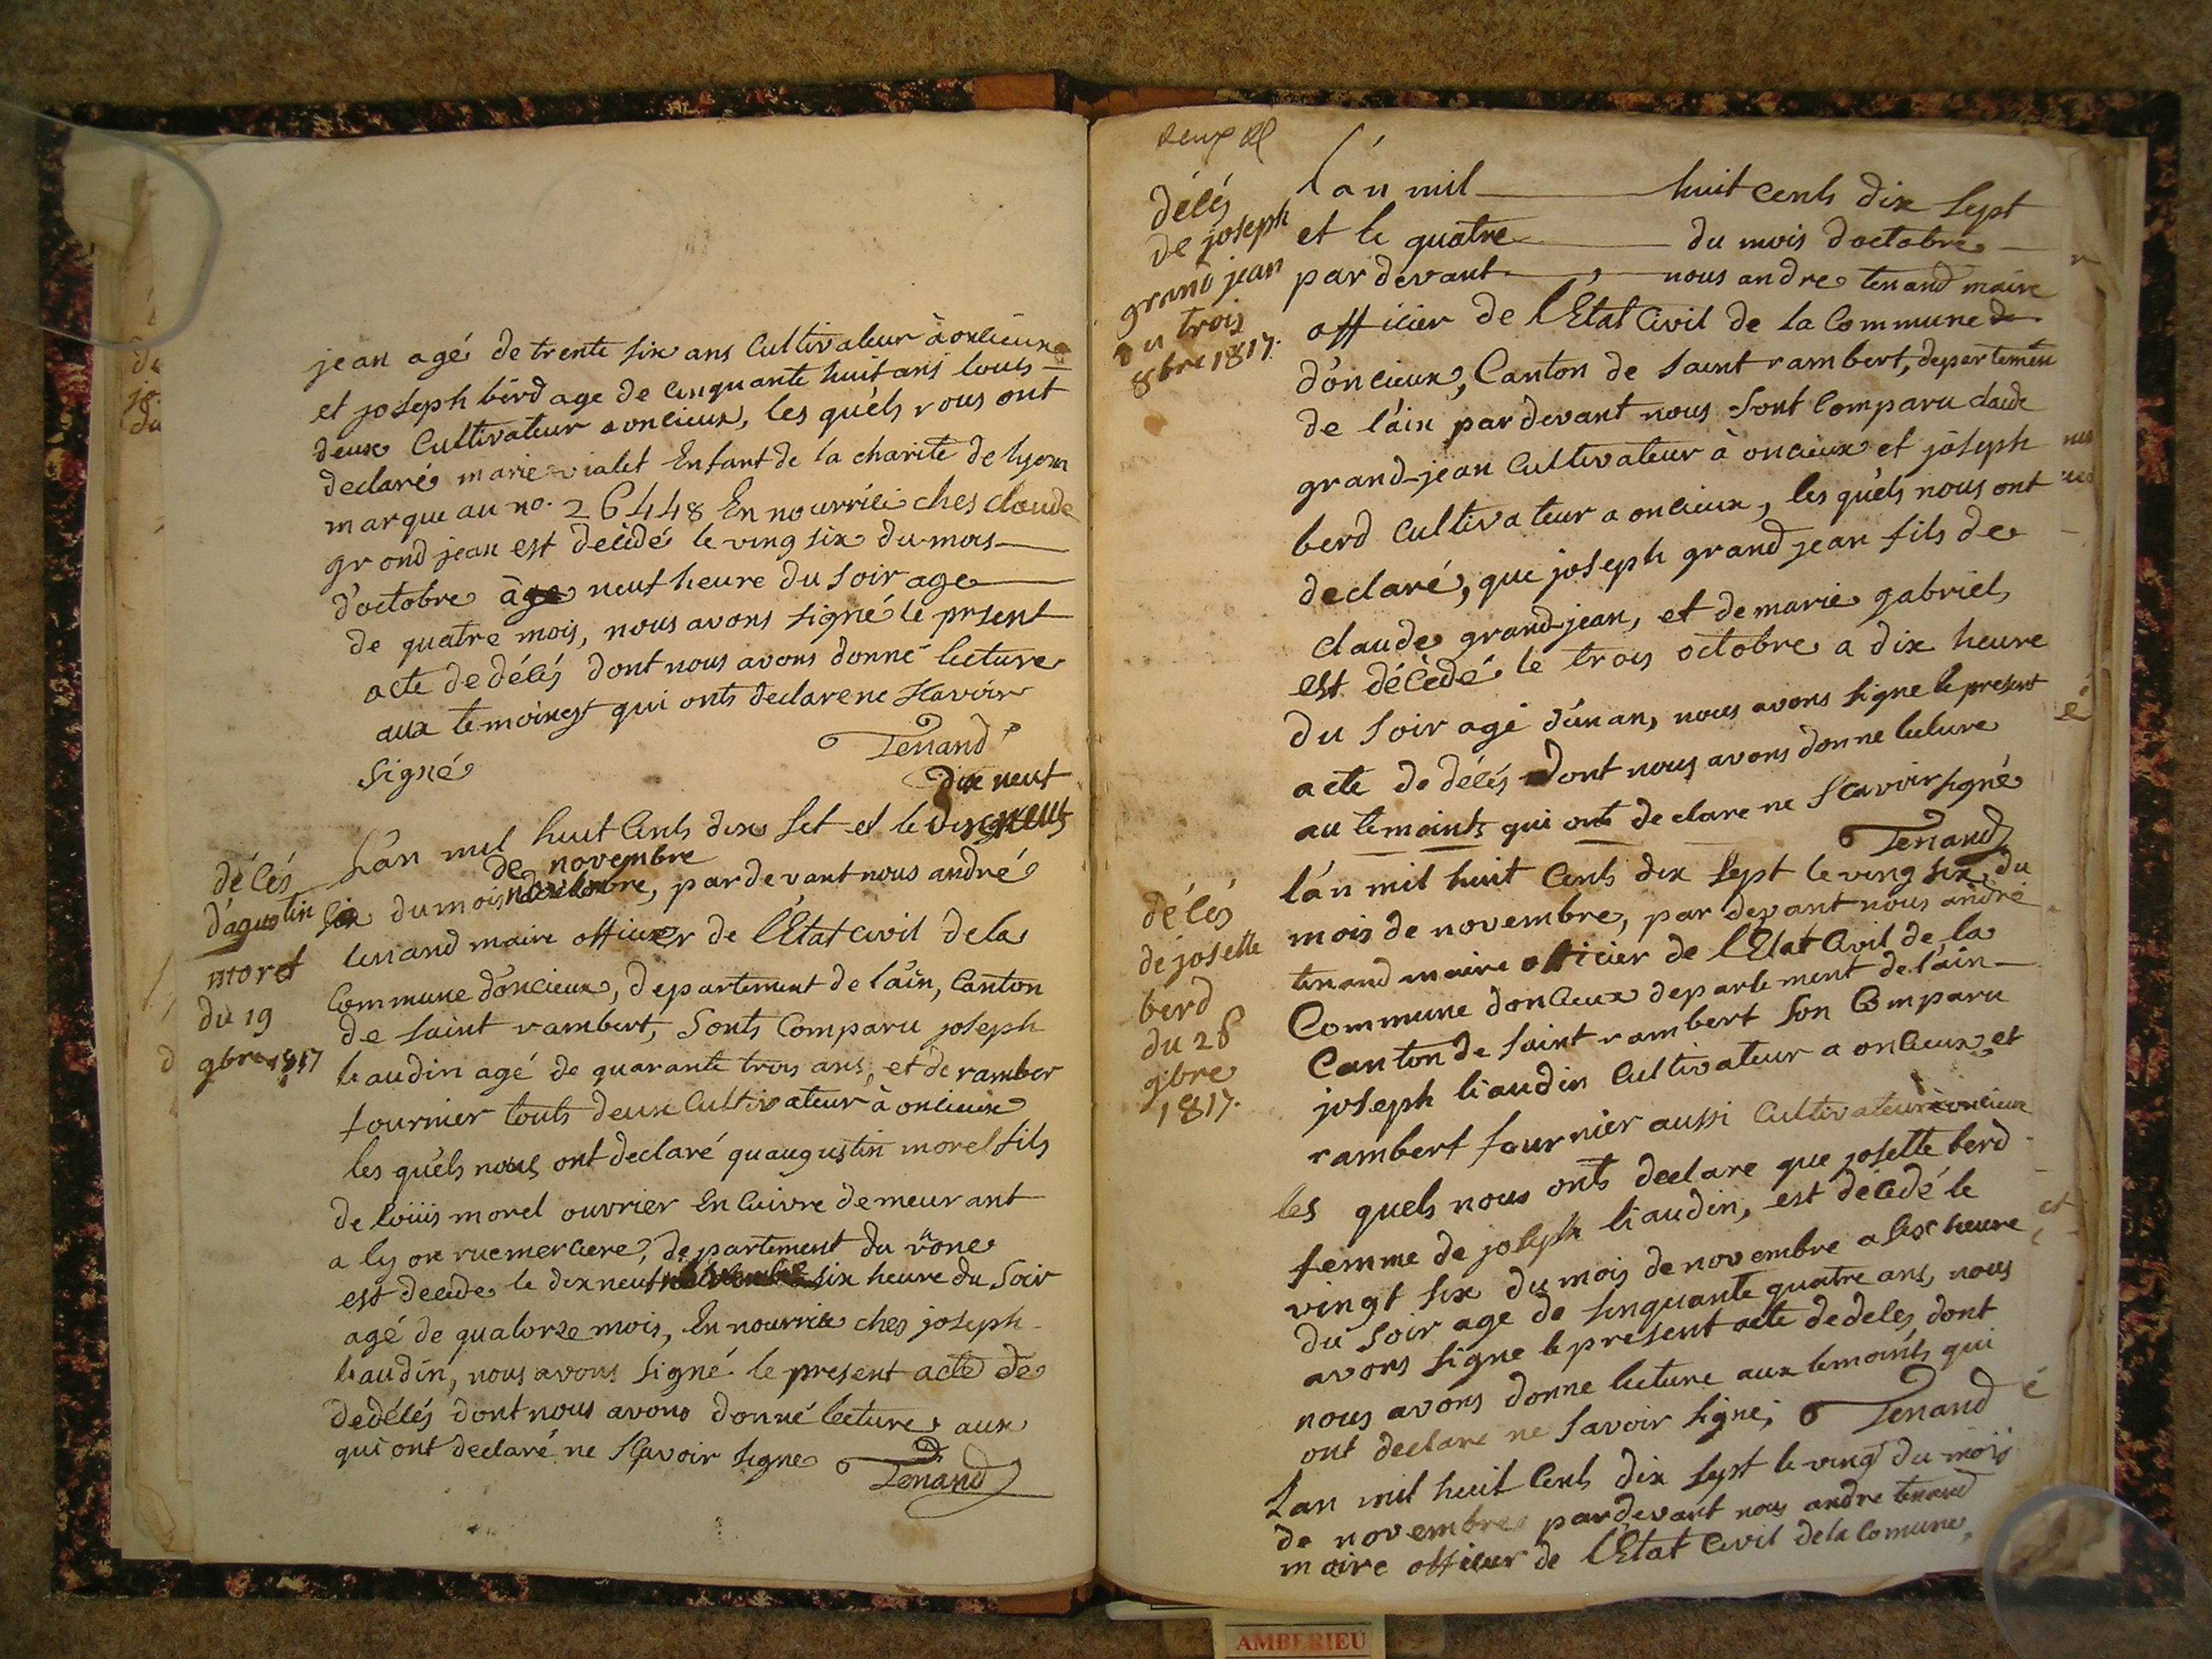 jean agé de trente six ans Cultivateur à oncieux
et joseph bérd age de Cinquante huit ans touts
deux Cultivateur a oncieux, les quéls vous ont
declaré marie vialet Enfant de la charite de lyon
marque au no. 26448 En nourrici ches claude
grond jean est décidé le ving six du mois
d'octobre à neuf heure du soir age
de quatre mois, nous avons signé le prsent
acte de délés dont nous avons donné lecture
aux temoines qui onts declare ne scavoir
Tenand
signé
dix neuf
L'an mil huit Cents dix set et le
de novembre
six du mois, par devant nous andré
tenand maire officier de l'Etat Civil de la
Commune d'oncieux, departement de l'ain, Canton
de saint rambert, Sonts Comparu joseph
liaudin agé de quarante trois ans, et de ramber
fournier touts deux Cultivateur à oncieux
les quéls nous ont declaré quaugustin morel fils
de louis morel ouvrier En Cuivre demeurant
a lyon rue merciere, departement du rone
est decide le dix neuf six heure du soir
agé de quatorze mois, En nourrice ches joseph
liaudin, nous avons signé le present acte de
dedélés dont nous avons donné lecture aux
qui ont declaré ne scavoir signe Tenand
délés
d'agustin
morel
du 19
9bre 1817
délés
de joseph
grand jean
du trois
8bre 1817.
l'an mil huit Cents dix sept
et le quatre du mois d'octobre
par devant nous andre tenand maire
officier de l'Etat Civil de la Commune de
d'oncieux, Canton de saint rambert, departemen
de l'ain par devant nous sont Comparu claude
grand-jean Cultivateur à oncieux et joseph
berd Cultivateur a oncieux, les quéls nous ont
declaré, que joseph grand jean fils de
claude grand-jean, et de marie gabriel,
est décédé le trois octobre a dix heure
du soir agé d'un an, nous avons signe le present
acte de délés dont nous avons donne lecture
au temoints qui onts declare ne scavoir signé
Tenand
délés
de josette
berd
du 26
9bre
1817.
l'án mil huit Cents dix sept le ving six du
mois de novembre, par devant nous andré
tenand maire officier de l'Etat Civil de la
Commune d'oncieux departement de l'ain
Canton de saint rambert son Comparu
joseph liaudin Cultivateur a oncieux, et
rambert fournier aussi Cultivateur à oncieux
les quels nous onts declare que josette berd
femme de joseph liaudin, est décédé le
vingt six du mois de novembre a six heure
du soir age de sinquante quatre ans, nous
avons signe le present acte dedeles dont
nous avons donne lecture aux temoints qui
ont declare ne savoir signe, Tenand
L'an mil huit Cents dix sept le ving du mois
de novembre pardevant nous andre tenand
maire officier de l'Etat Civil de la Comune
AMBERIEU